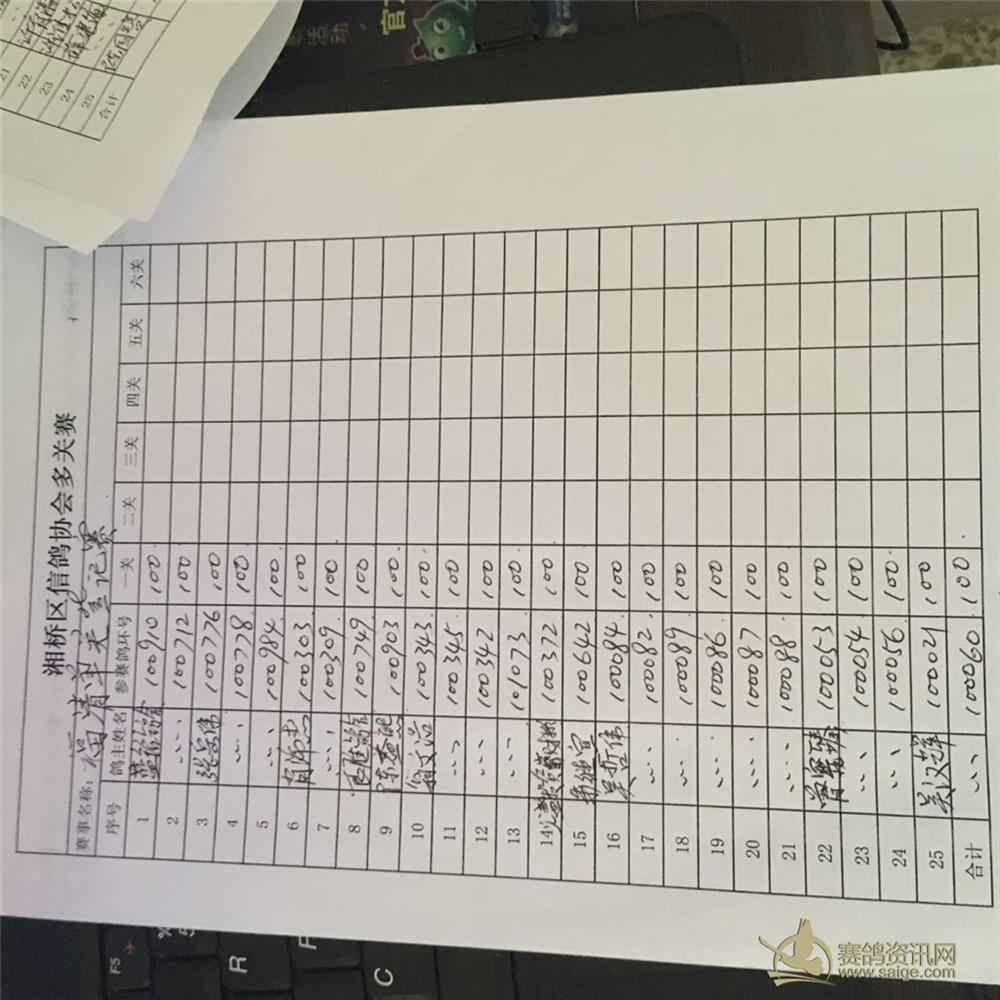 湘桥区信鸽协会多关赛
赛事名称: 福清单关登记赛
序号 鸽主姓名 参赛鸽环号 一关 二关 三关 四关 五关 六关
1 100910 100
2 〃 100712 100
3 张岳伟 100776 100
4 〃 100778 100
5 〃 100984 100
6 肖沛忠 100303 100
7 〃 100309 100
8 100749 100
9 100903 100
10 翁文浩 100343 100
11 〃 100345 100
12 〃 100342 100
13 〃 101073 100
14 100372 100
15 100642 100
16 吴哲伟 100084 100
17 〃 100082 100
18 〃 100089 100
19 〃 100086 100
20 〃 100087 100
21 〃 100088 100
22 100053 100
23 〃 100054 100
24 〃 100056 100
25 吴汉辉 100021 100
合计 〃 100060 100
21
22
23
24
25
合计
官
活动
F5
R
F
C
%
5
赛鸽资讯网
www.saige.com